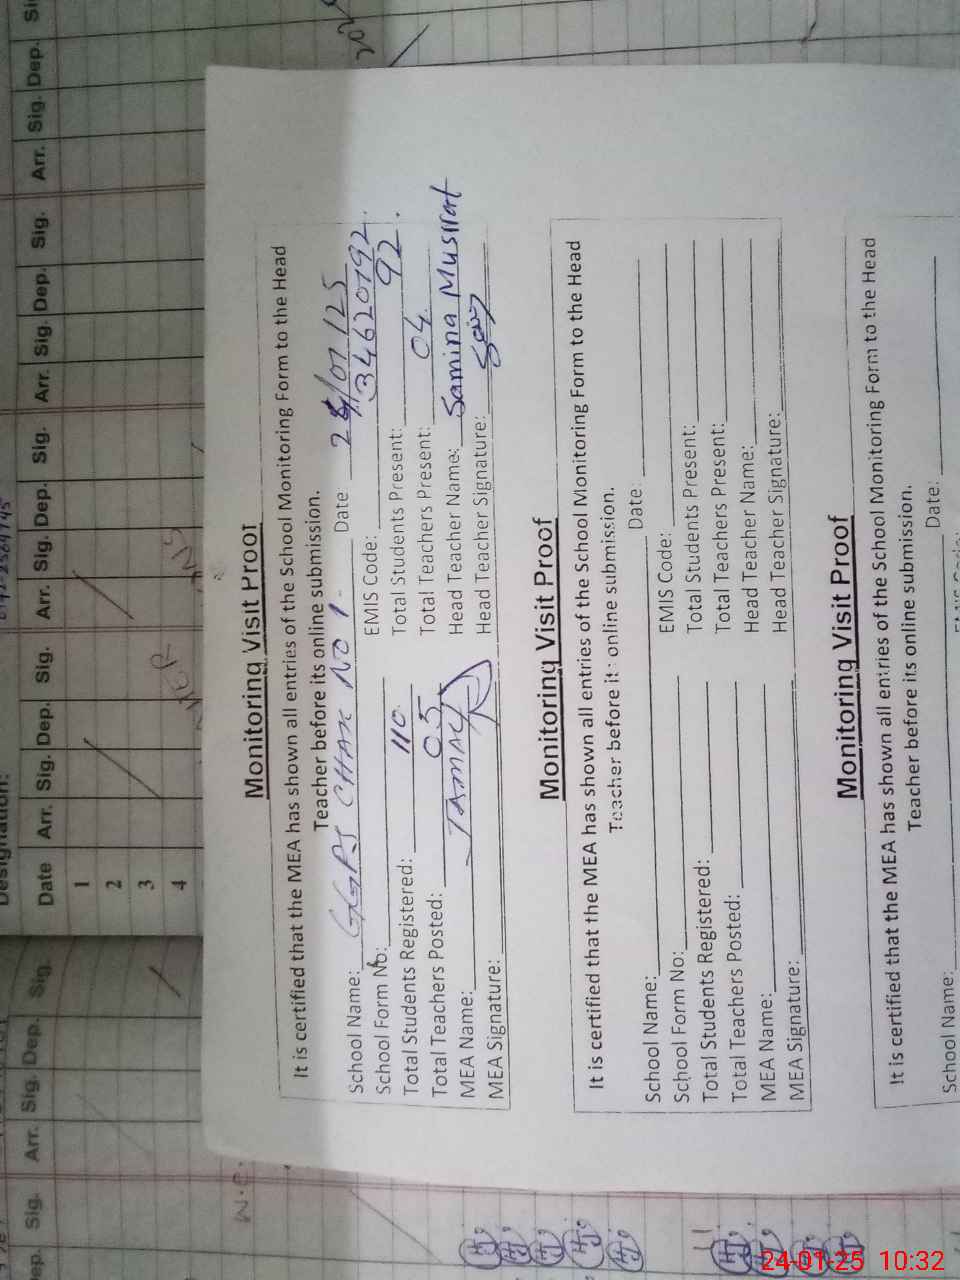 Designation:
Date Arr. Sig. Dep. Sig. Arr. Sig. Dep. Sig. Arr. Sig. Dep. Sig. Arr. Sig. Dep.
1
2
3
4
Dep. Sig. Arr. Sig. Dep. Sig.
W.E.
Monitoring Visit Proof
It is certified that the MEA has shown all entries of the School Monitoring Form to the Head
Teacher before its online submission.
School Name: GGPS CHAK NO 1 Date: 24/01/25
School Form No: EMIS Code: 34620192
Total Students Registered: 110 Total Students Present: 92
Total Teachers Posted: 05 Total Teachers Present: 04
MEA Name: JAMAL Head Teacher Name: Samina Musrrat
MEA Signature: Head Teacher Signature:
Monitoring Visit Proof
It is certified that the MEA has shown all entries of the School Monitoring Form to the Head
Teacher before its online submission.
School Name: Date:
School Form No: EMIS Code:
Total Students Registered: Total Students Present:
Total Teachers Posted: Total Teachers Present:
MEA Name: Head Teacher Name:
MEA Signature: Head Teacher Signature:
Monitoring Visit Proof
It is certified that the MEA has shown all entries of the School Monitoring Form to the Head
Teacher before its online submission.
School Name: Date:
24-01-25 10:32